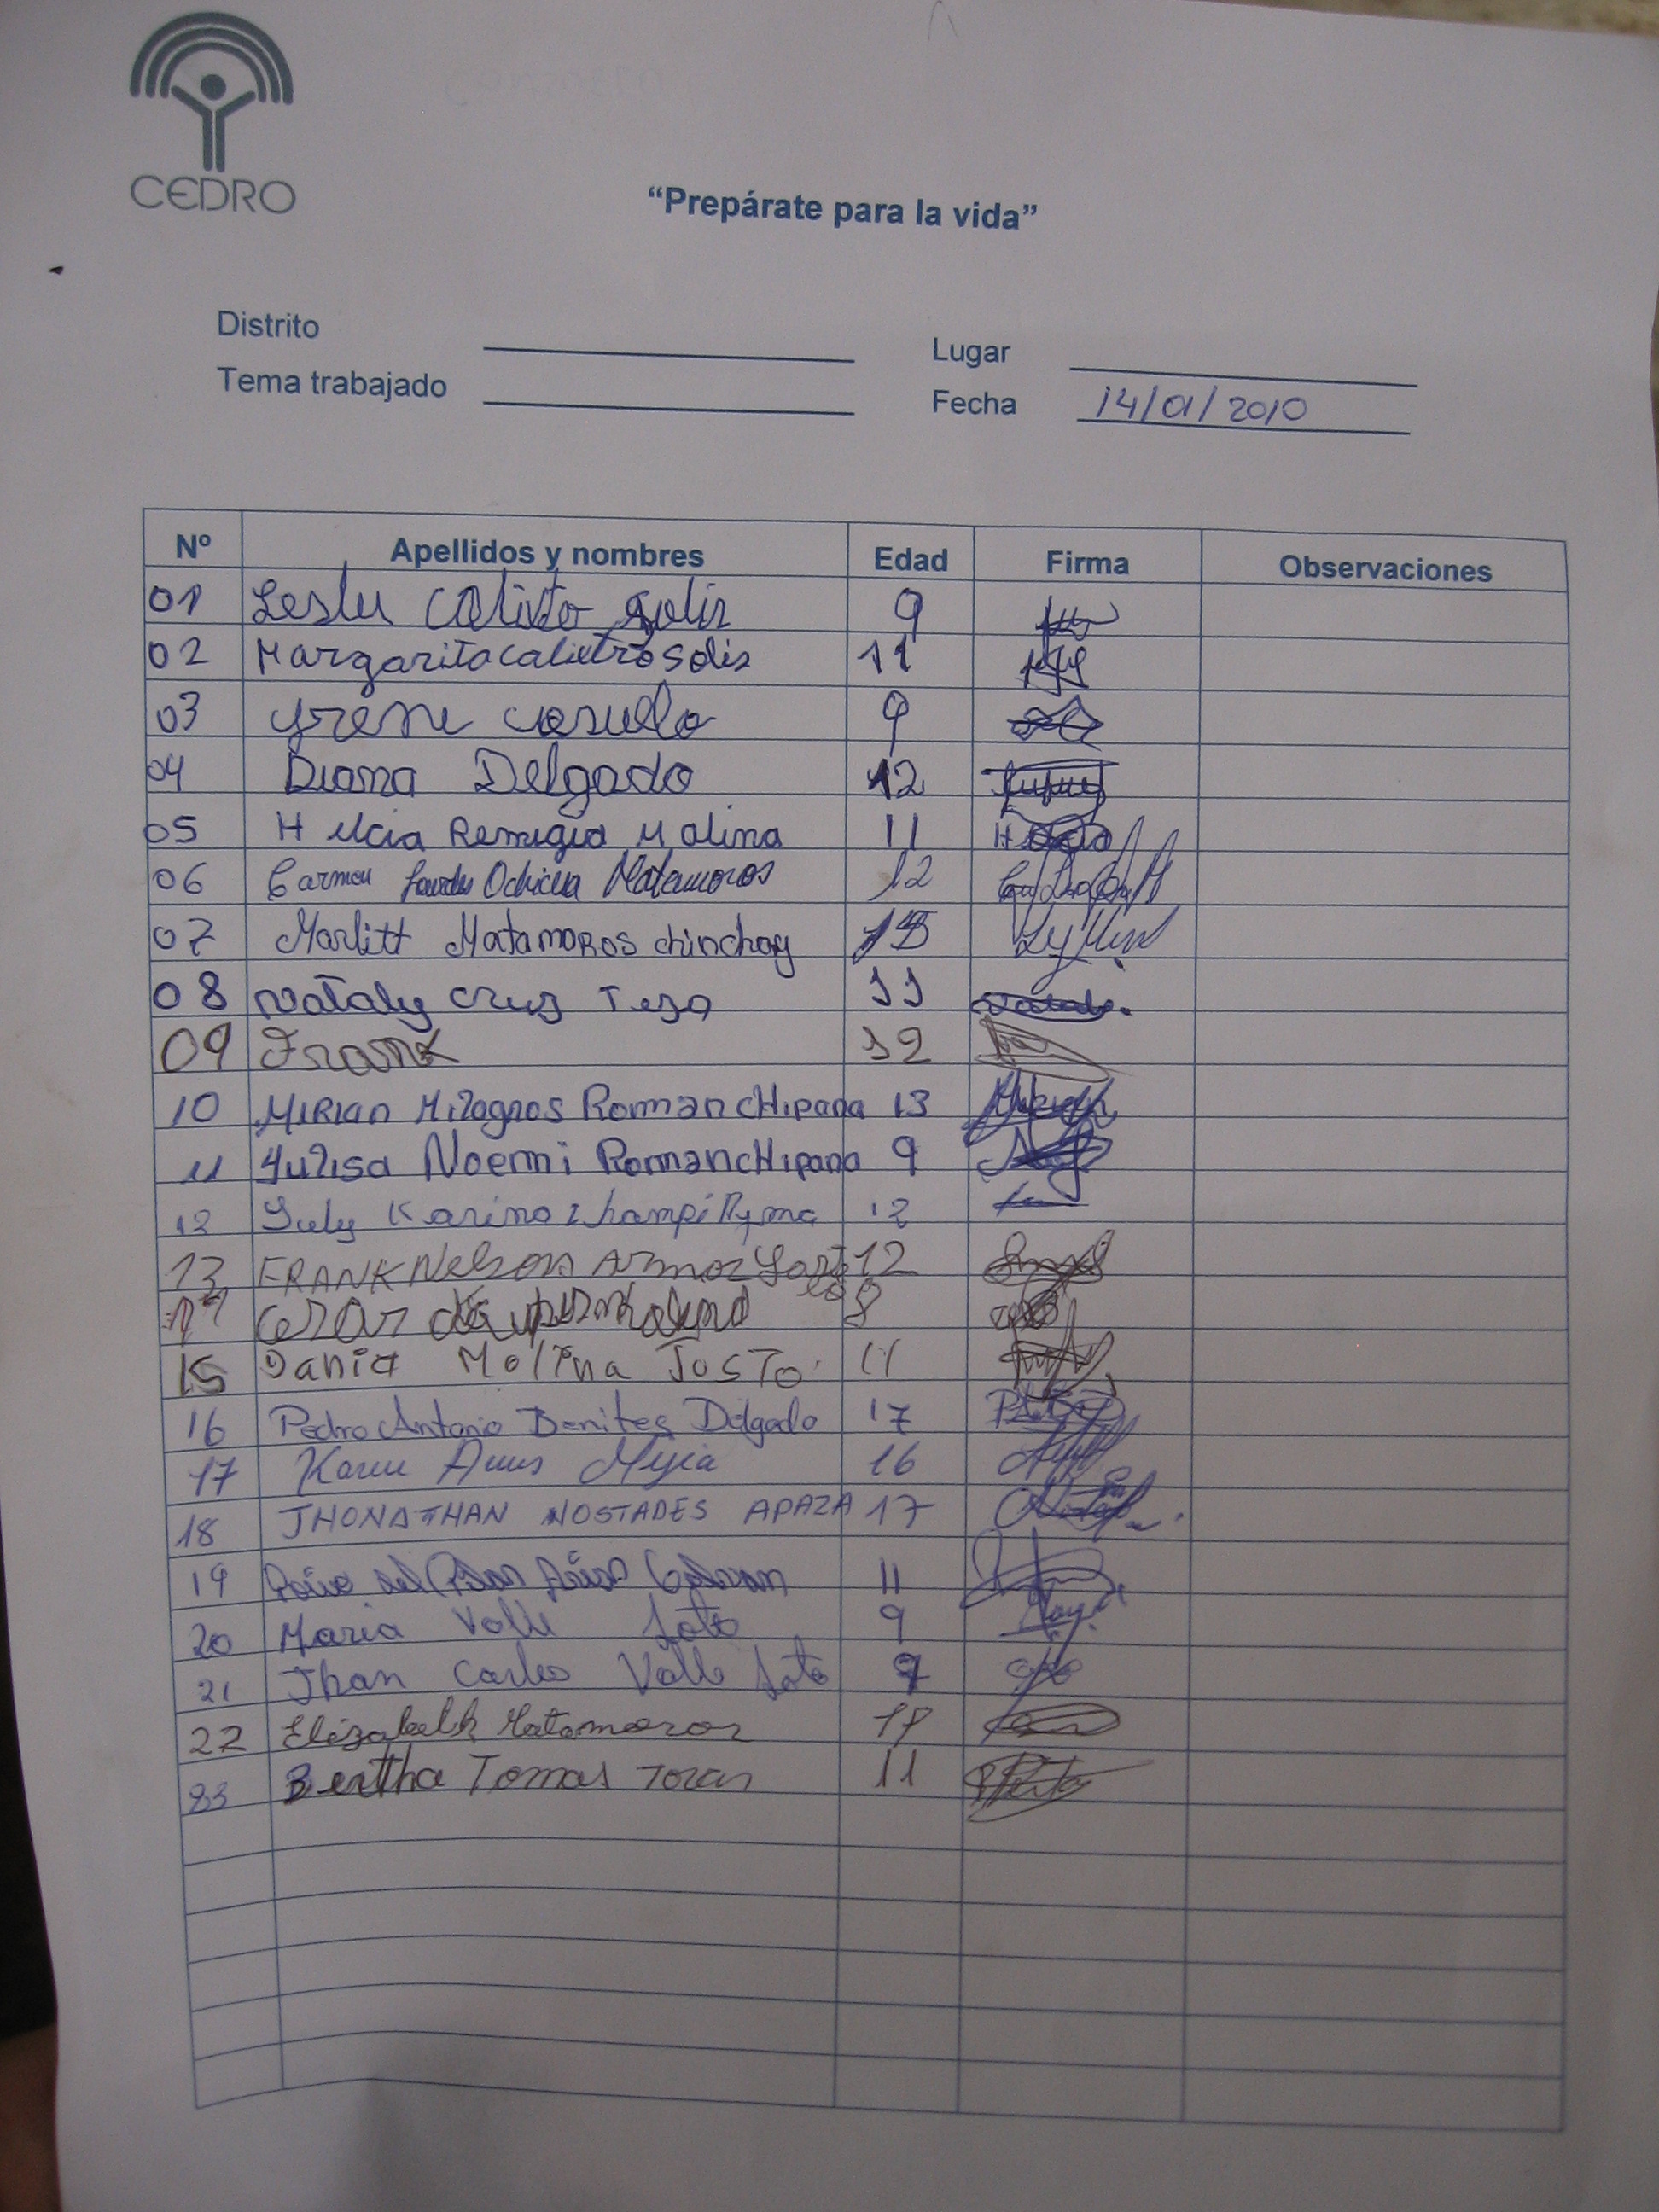 CEDRO
“Prepárate para la vida”
Distrito
Lugar
Tema trabajado
Fecha 14/01/2010
Nº Apellidos y nombres Edad Firma Observaciones
01 Lesly Calixto Solis 9
02 Margarita Calixtro Solis 11
03 yrene 9
04 Diana Delgado 12
05 Hilcia Remigio Molina 11
06 Carmen Lourdes Matamoros 12
07 Marlitt Matamoros chinchay
08 Nataly Cruz 11
09 Frank 12
10 MIRIAN Milagros Roman cHipana 13
11 Yulisa Noemi Roman cHipana 9
12 July Karina 12
13 FRANK Nelson 12
14 cesar 8
15 Dania Molina Justo 11
16 Pedro Antonio Benites Delgado 17
17 Mejia 16
18 JHONATHAN NOSTADES APAZA 17
19 del 11
20 Maria Valle Soto 9
21 Jhan Carlos Valle Soto
22 Elizabelk Matamoros
23 Bertha Tomas 11